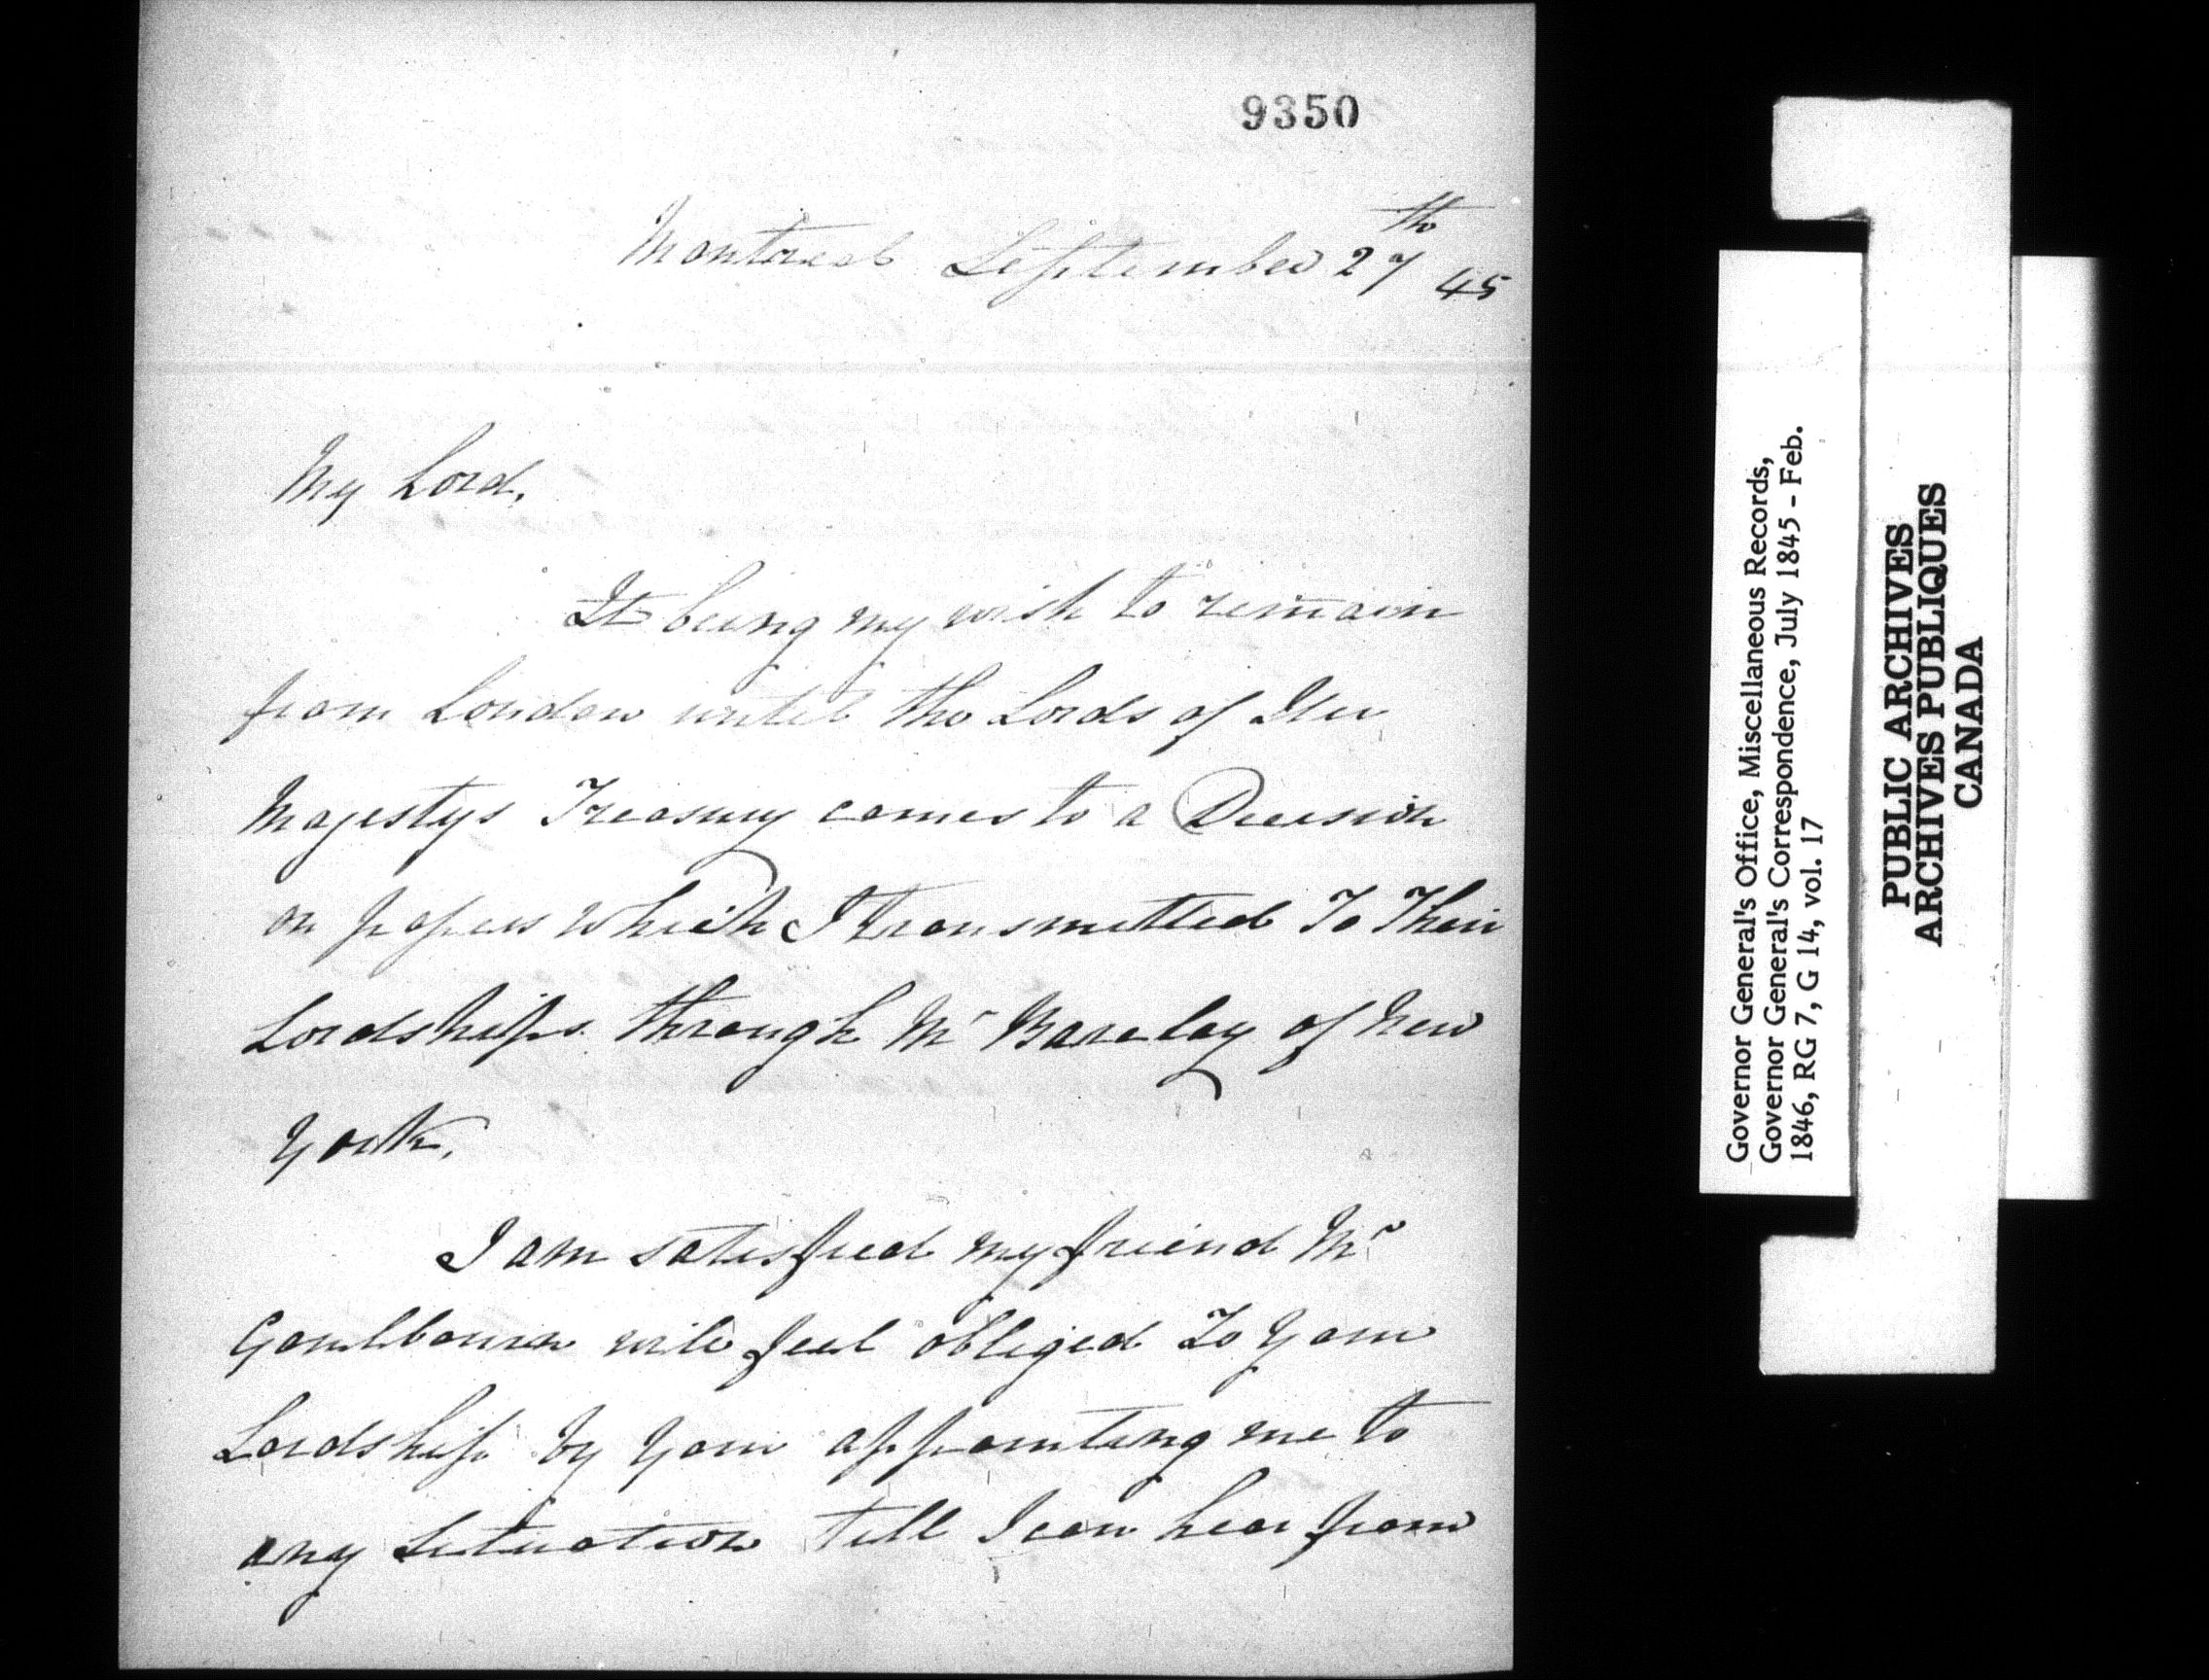 9350
Montreal September 27th 45
My Lord,
It being my wish to remain
from London until the Lords of Her
Majestys Treasury comes to a Decision
on papers which I transmitted To Their
Lordships through Mr Barclay of New
York.
I am satisfied my friend Mr
Goulbourn will feel obliged To Your
Lordship by Your appointing me to
any Situation till I can hear from
Governor General's Office, Miscellaneous Records,
Governor General's Correspondence, July 1845 - Feb.
1846, RG 7, G 14, vol. 17
PUBLIC ARCHIVES
ARCHIVES PUBLIQUES
CANADA